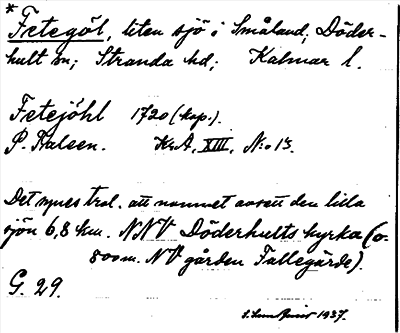 * Fetegöl, liten sjö i Småland; Döder-
hult sn; Stranda hd; Kalmar l.
Fetejöhl 1720 (kop.).
P. Kalsen. Kr.A. XIII, N:o 13.
Det synes trol. att namnet avsett den lilla
sjön 6,8 km. NNV Döderhults kyrka (o.
800 m. NV gården Fallegärde).
G. 29.
1937.